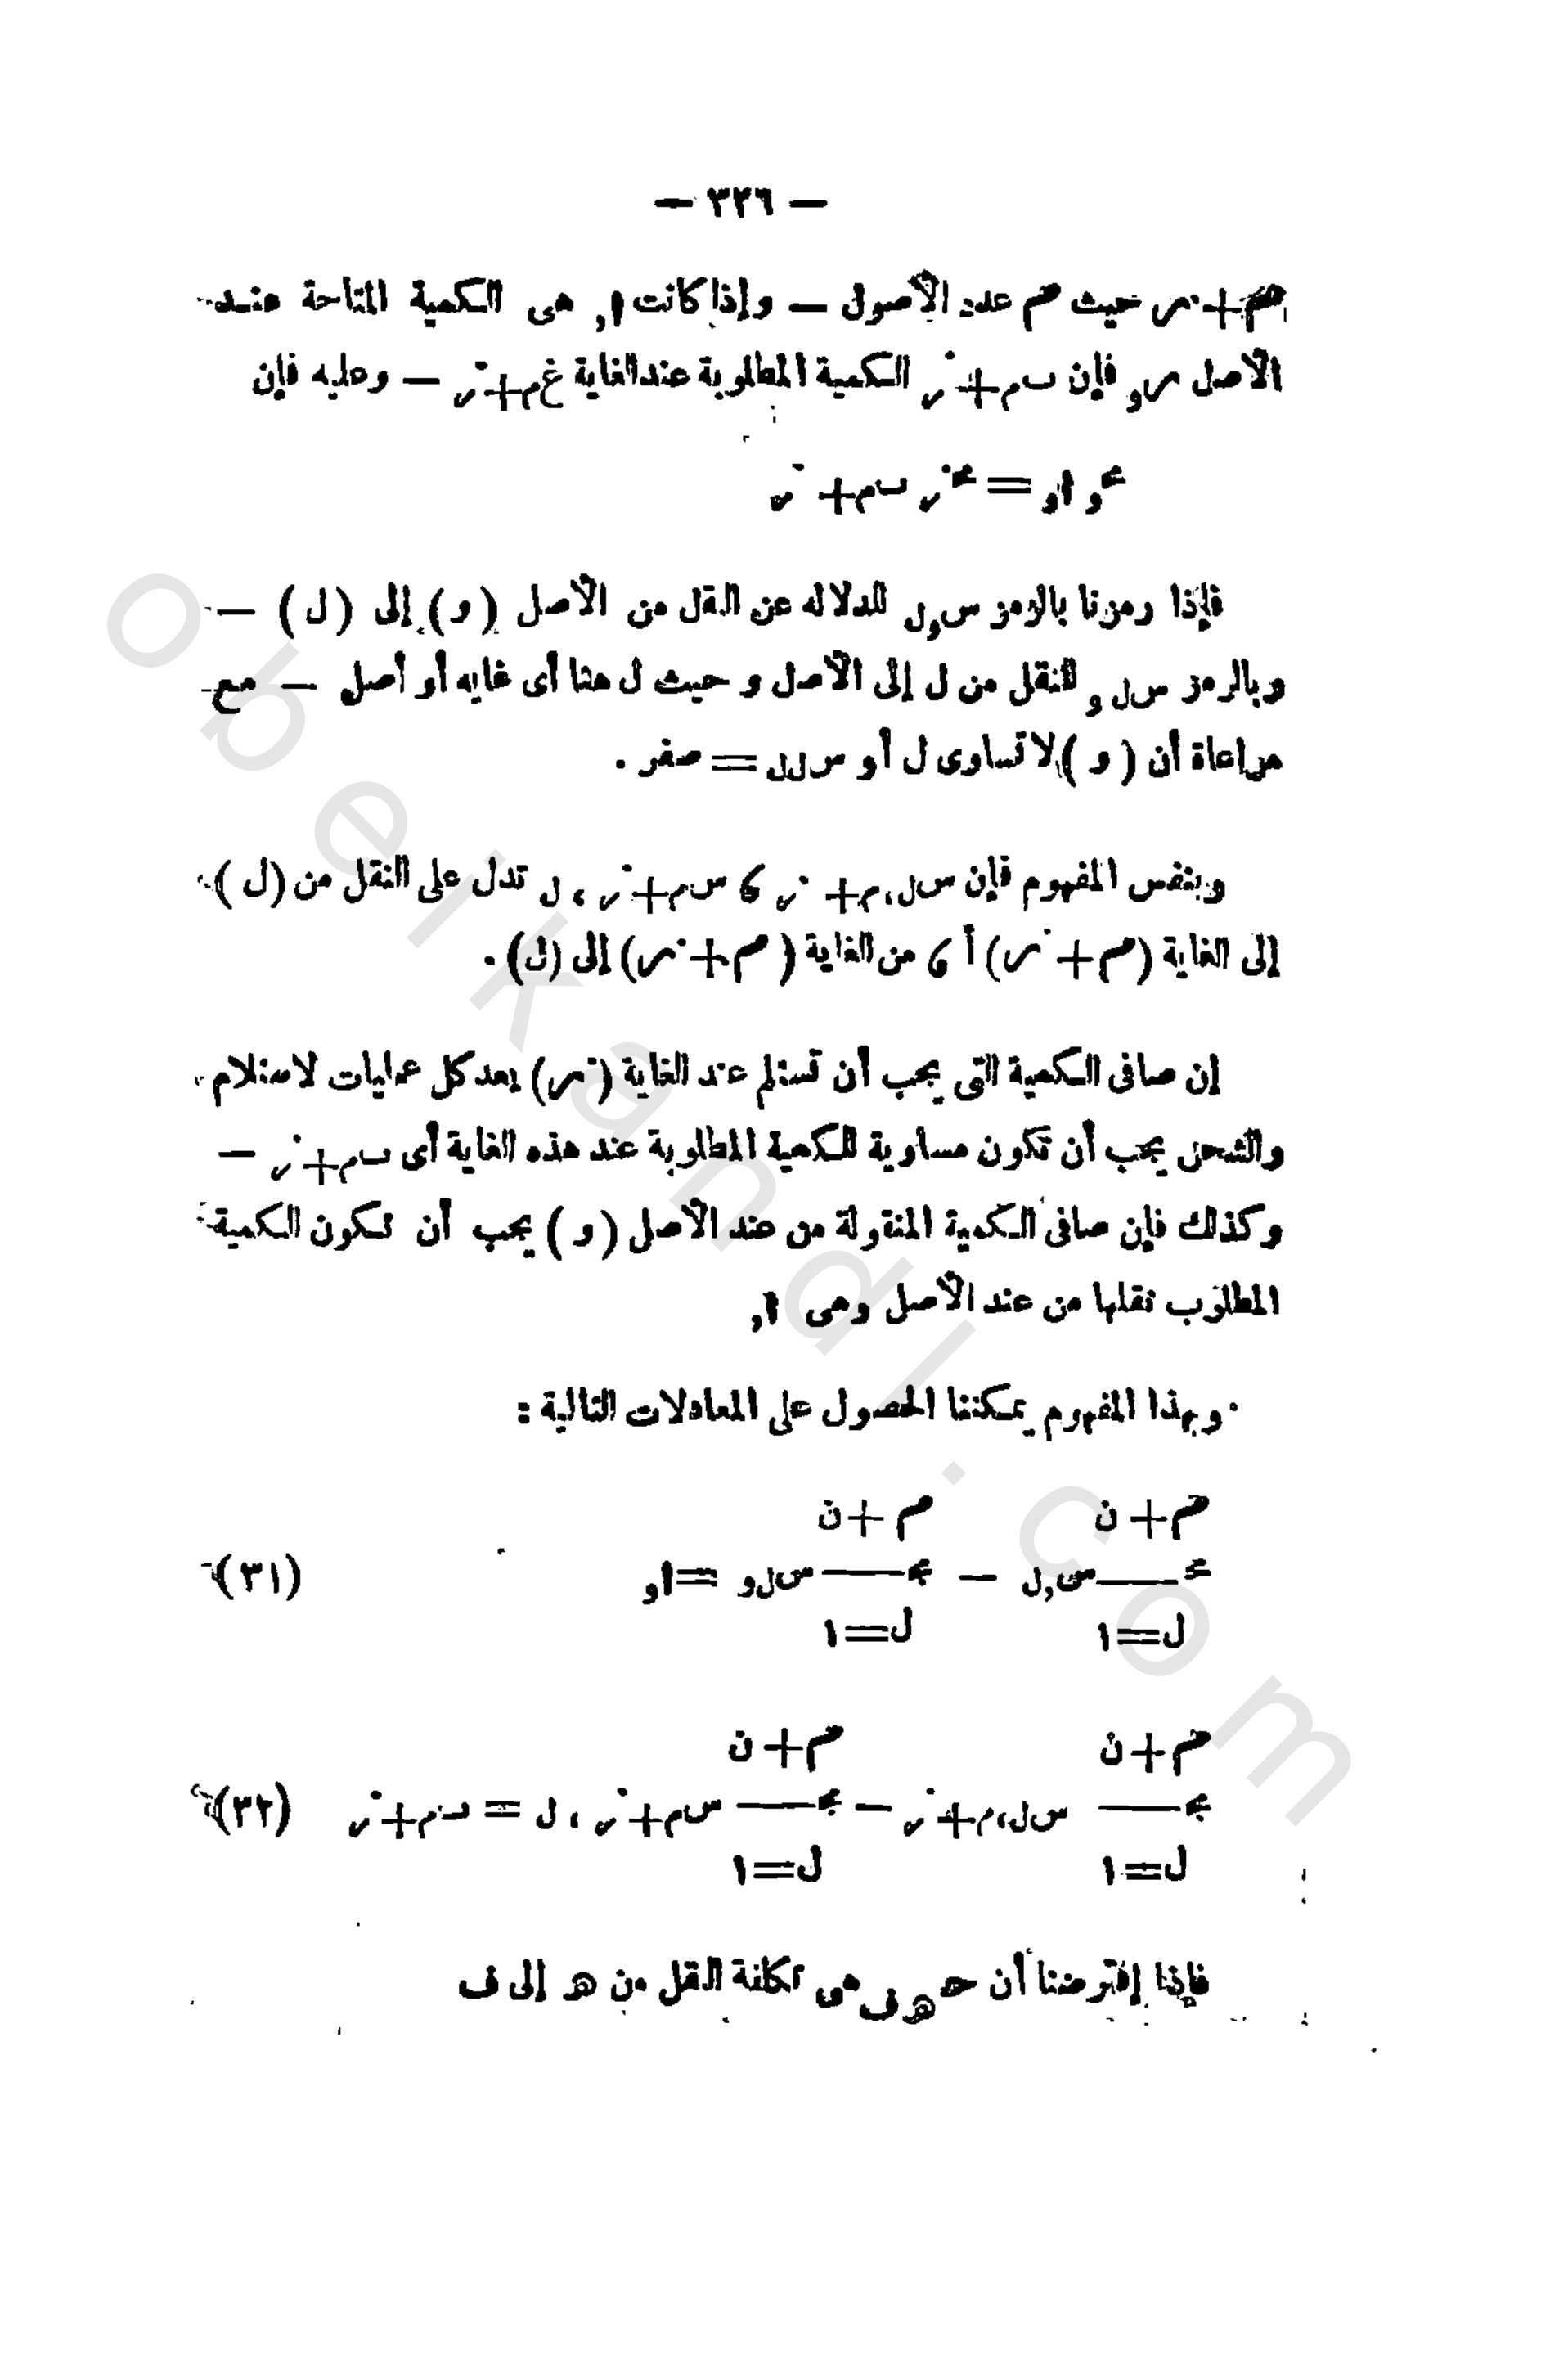 — ٣٢٦ —
م+ن حيث م عدد الأصول — وإذا كانت ا و هى الكمية المتاحة عند
الأصل و فإن ب م+ن الكمية المطلوبة عند الغاية غ م+ن — وعليه فإن
مجـ و ا و = مجـ ن ب م+ن
فإذا رمزنا بالرمز س و ل للدلاله عن النقل من الأصل ( و ) إلى ( ل ) —
وبالرمز س ل و للنقل من ل إلى الأصل و حيث ل هنا أى غايه أو أصل — مع
مراعاة أن ( و ) لا تساوى ل أو س ل ل = صفر .
وبنفس المفهوم فإن س ل، م+ن ، س م+ن ، ل تدل على النقل من ( ل )
إلى الغاية (م+ن) أ ، من الغاية (م+ن) إلى (ل) .
إن صافى الكمية التى يجب أن تستلم عند الغاية (ن) بعد كل عمليات لاستلام
والشحن يجب أن تكون مساوية للكمية المطلوبة عند هذه الغاية أى ب م+ن —
وكذلك فإن صافى الكمية المنقولة من عند الأصل ( و ) يجب أن تكون الكمية
المطلوب نقلها من عند الأصل وهى ا و
وبهذا المفهوم يمكننا الحصول على المعادلات التالية :
م+ن م+ن
مجـ س و ل — مجـ س ل و = ا و (٣١)
ل=١ ل=١
م+ن م+ن
مجـ س ل، م+ن — مجـ س م+ن ، ل = ب م+ن (٣٢)
ل=١ ل=١
فإذا إفترضنا أن حـ هـ ف هى تكلفة النقل من هـ إلى ف
obeikandl.com